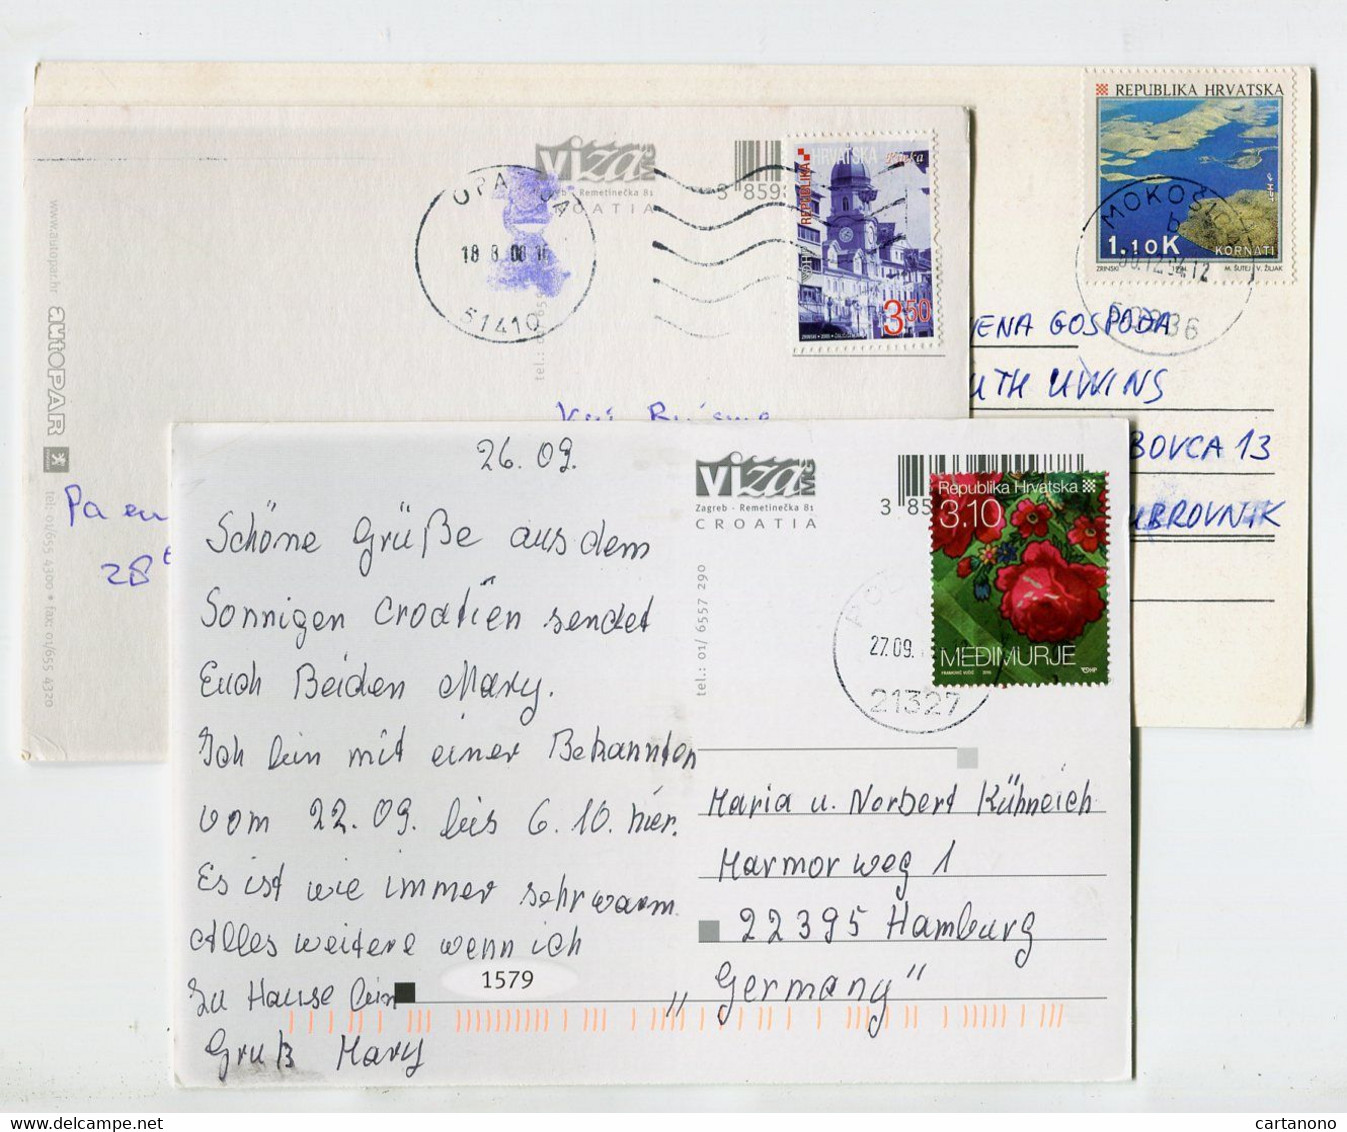 REPUBLIKA HRVATSKA
1.10K KORNATI
ZRINSKI M. ŠUTEJ V. ŽILJAK
GOSPOĐA
UWINS
BOVCA 13
UBROVNIK
www.autopar.hr autoPAR
tel: 01/655 4300 • fax: 01/655 4320
viza MG
Zagreb - Remetinečka 81
CROATIA
REPUBLIKA
HRVATSKA Rijeka
3.50
18 8
51410
Pa en
28
26.09.
Schöne Grüße aus dem
Sonnigen Croatien sendet
Euch Beiden Mary.
Ich bin mit einer Bekannten
vom 22.09. bis 6.10. hier.
Es ist wie immer sehr warm.
Alles weitere wenn ich
zu Hause bin
Gruß Mary
1579
viza MG
Zagreb - Remetinečka 81
CROATIA
tel.: 01/ 6557 290
Republika Hrvatska
3.10
MEĐIMURJE
27.09.
21327
Maria u. Norbert Kühneich
Marmorweg 1
22395 Hamburg
„Germany"
cartanono